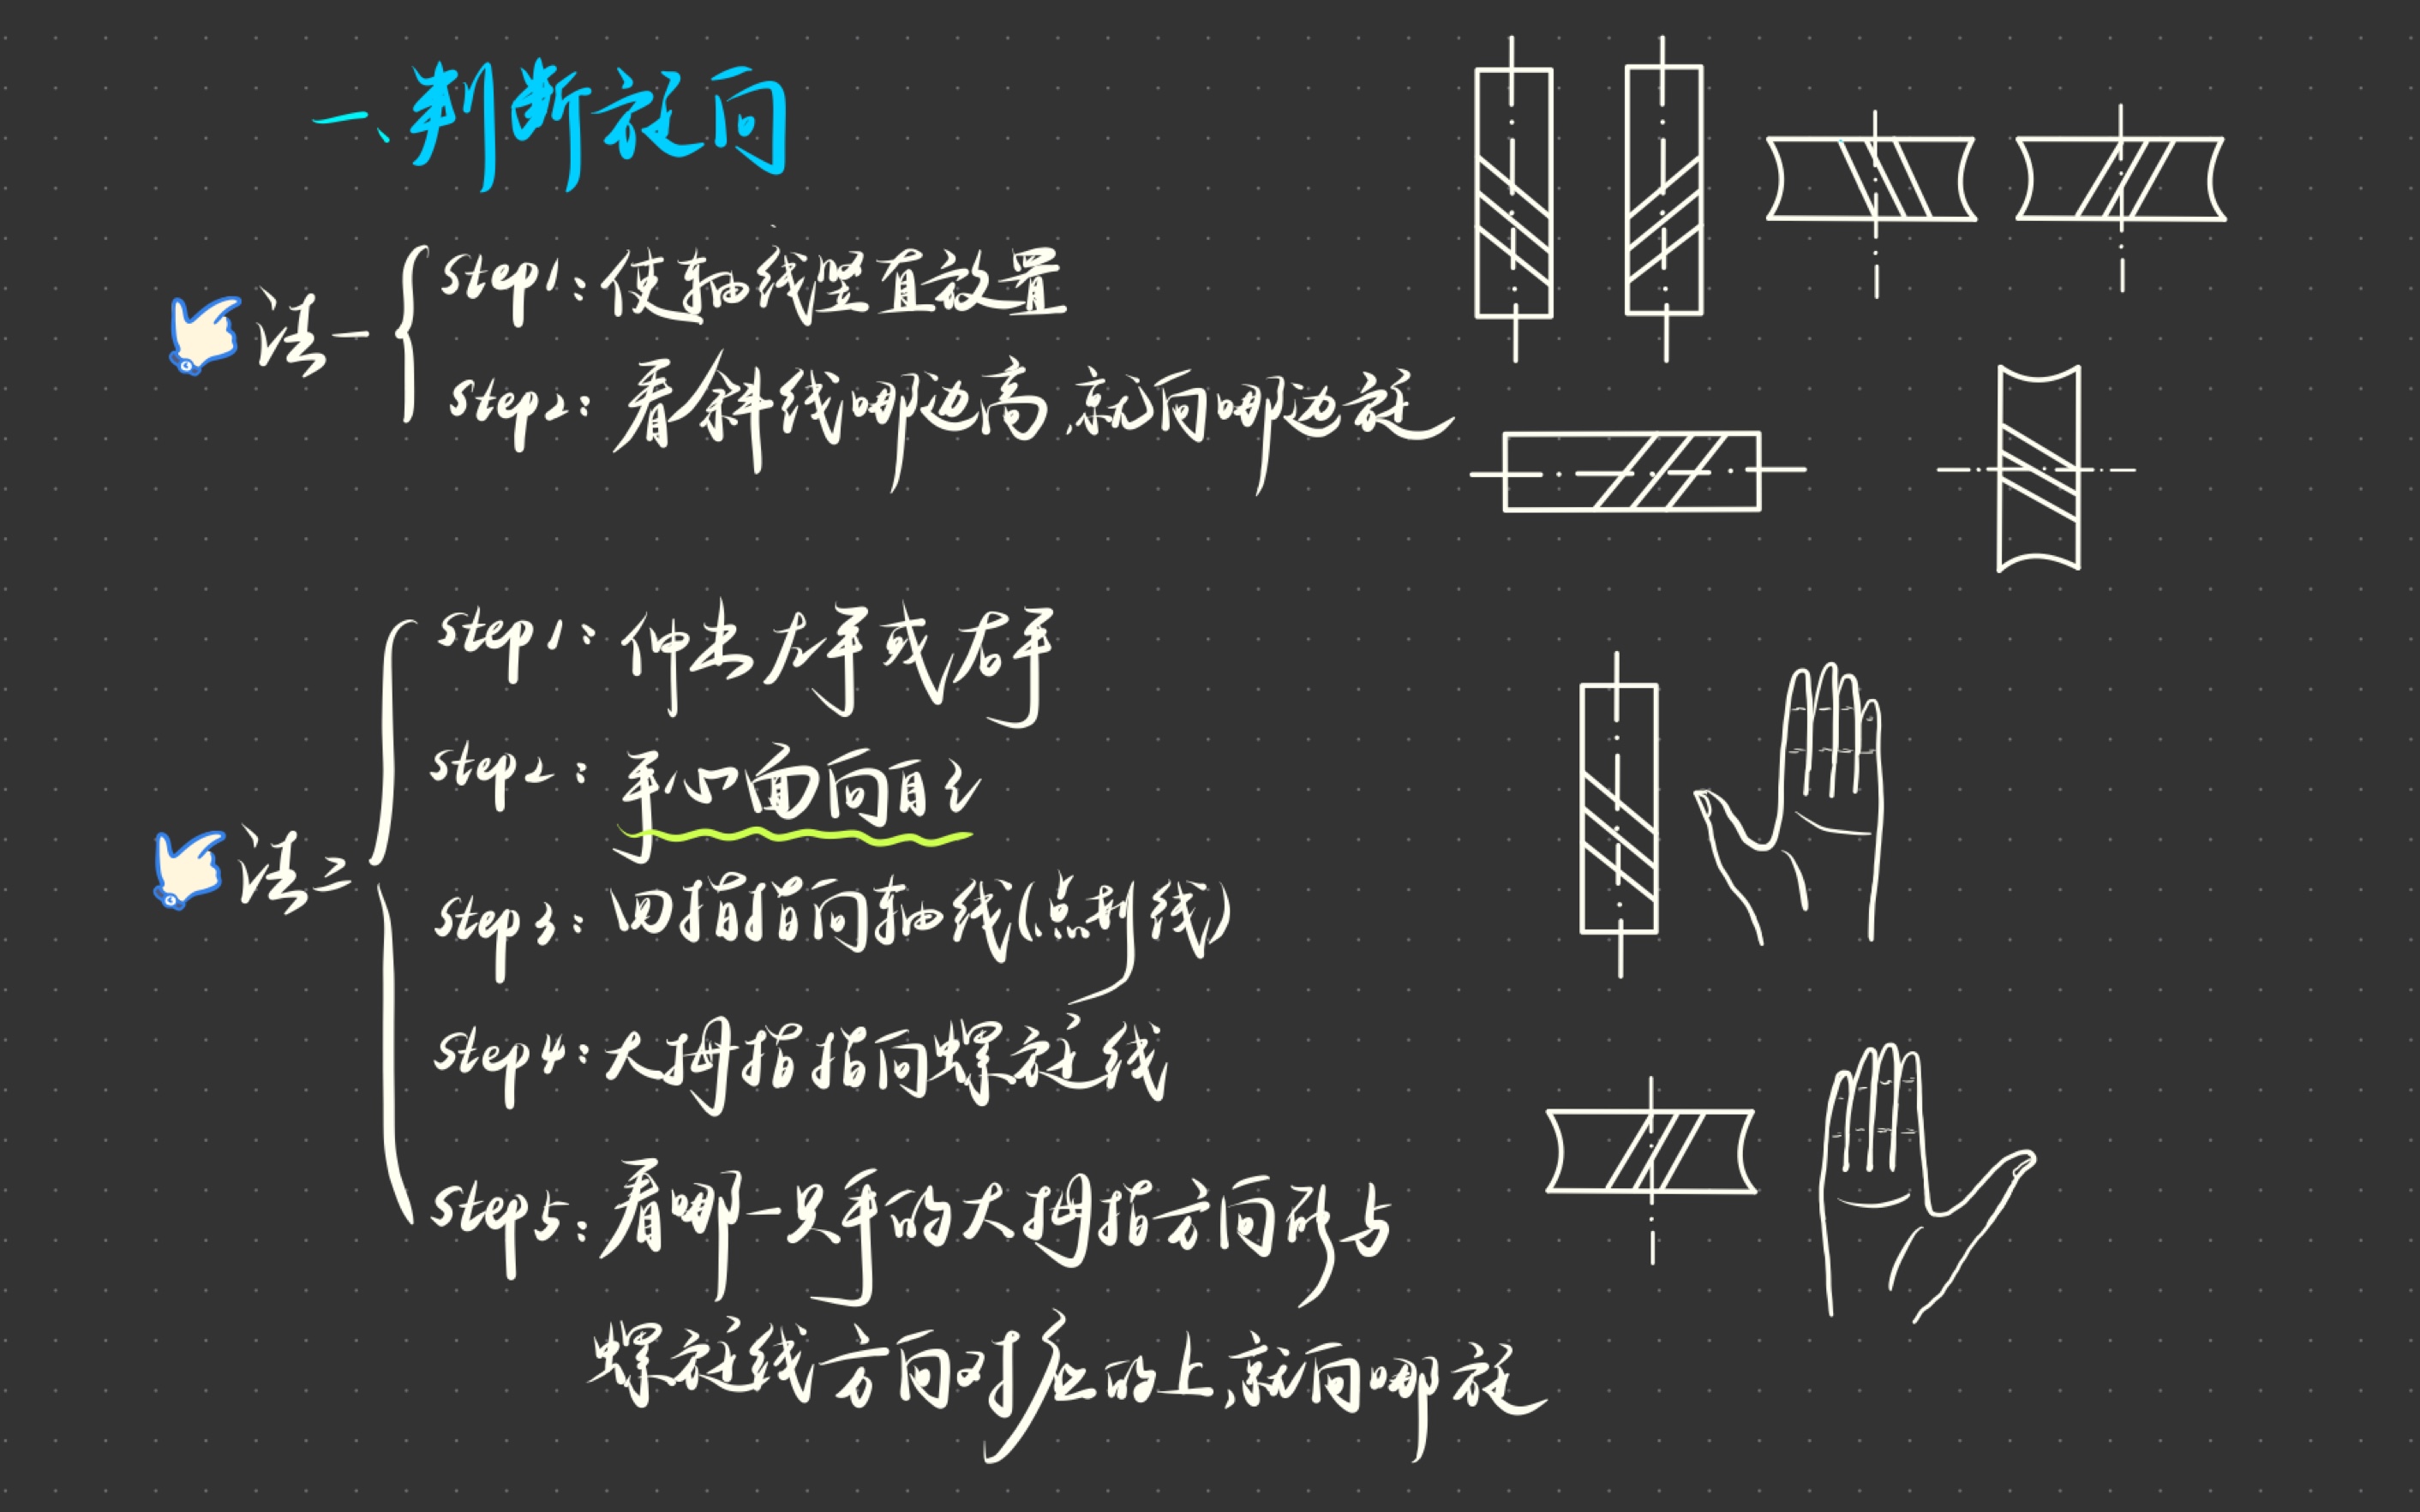 一、判断旋向
法一
Step1:使轴线竖直放置
Step2:看斜线哪边高,就向哪边旋
法二
Step1:伸出左手或右手
Step2:手心面向自己
Step3:四指指向轴线(点划线)
Step4:大拇指指向螺旋线
Step5:看哪一只手的大拇指方向能与
螺旋线方向对应的上,就向哪旋